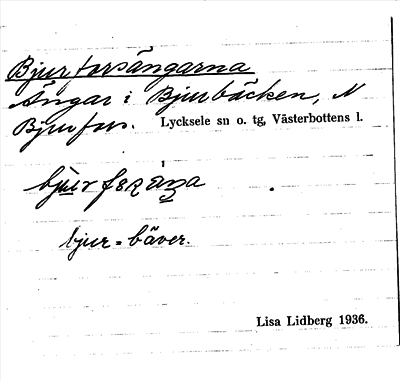 Bjurforsängarna
Ängar i Bjurbäcken, N
Bjurfors. Lycksele sn o. tg, Västerbottens l.
bjur = bäver.
Lisa Lidberg 1936.